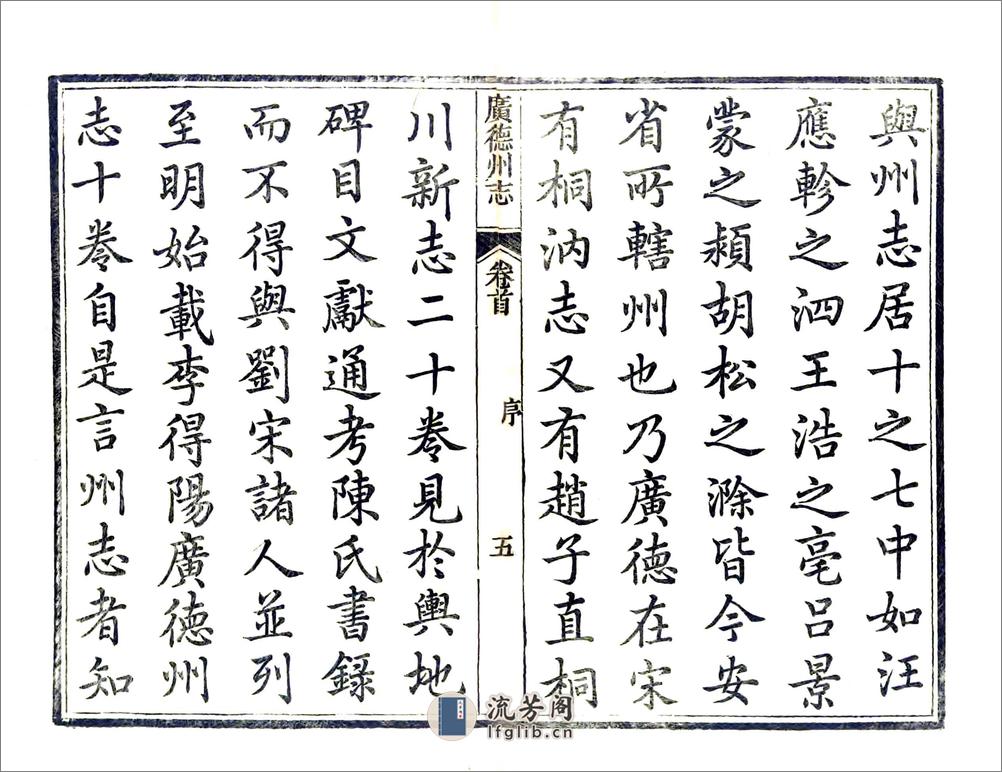 與州志居十之七中如汪
應軫之泗王浩之亳呂景
蒙之潁胡松之滁皆今安
省所轄州也乃廣德在宋
有桐汭志又有趙子直桐
廣德州志
卷首
序
五
川新志二十卷見於輿地
碑目文獻通考陳氏書錄
而不得與劉宋諸人並列
至明始載李得陽廣德州
志十卷自是言州志者知
流芳阁
lfglib.cn